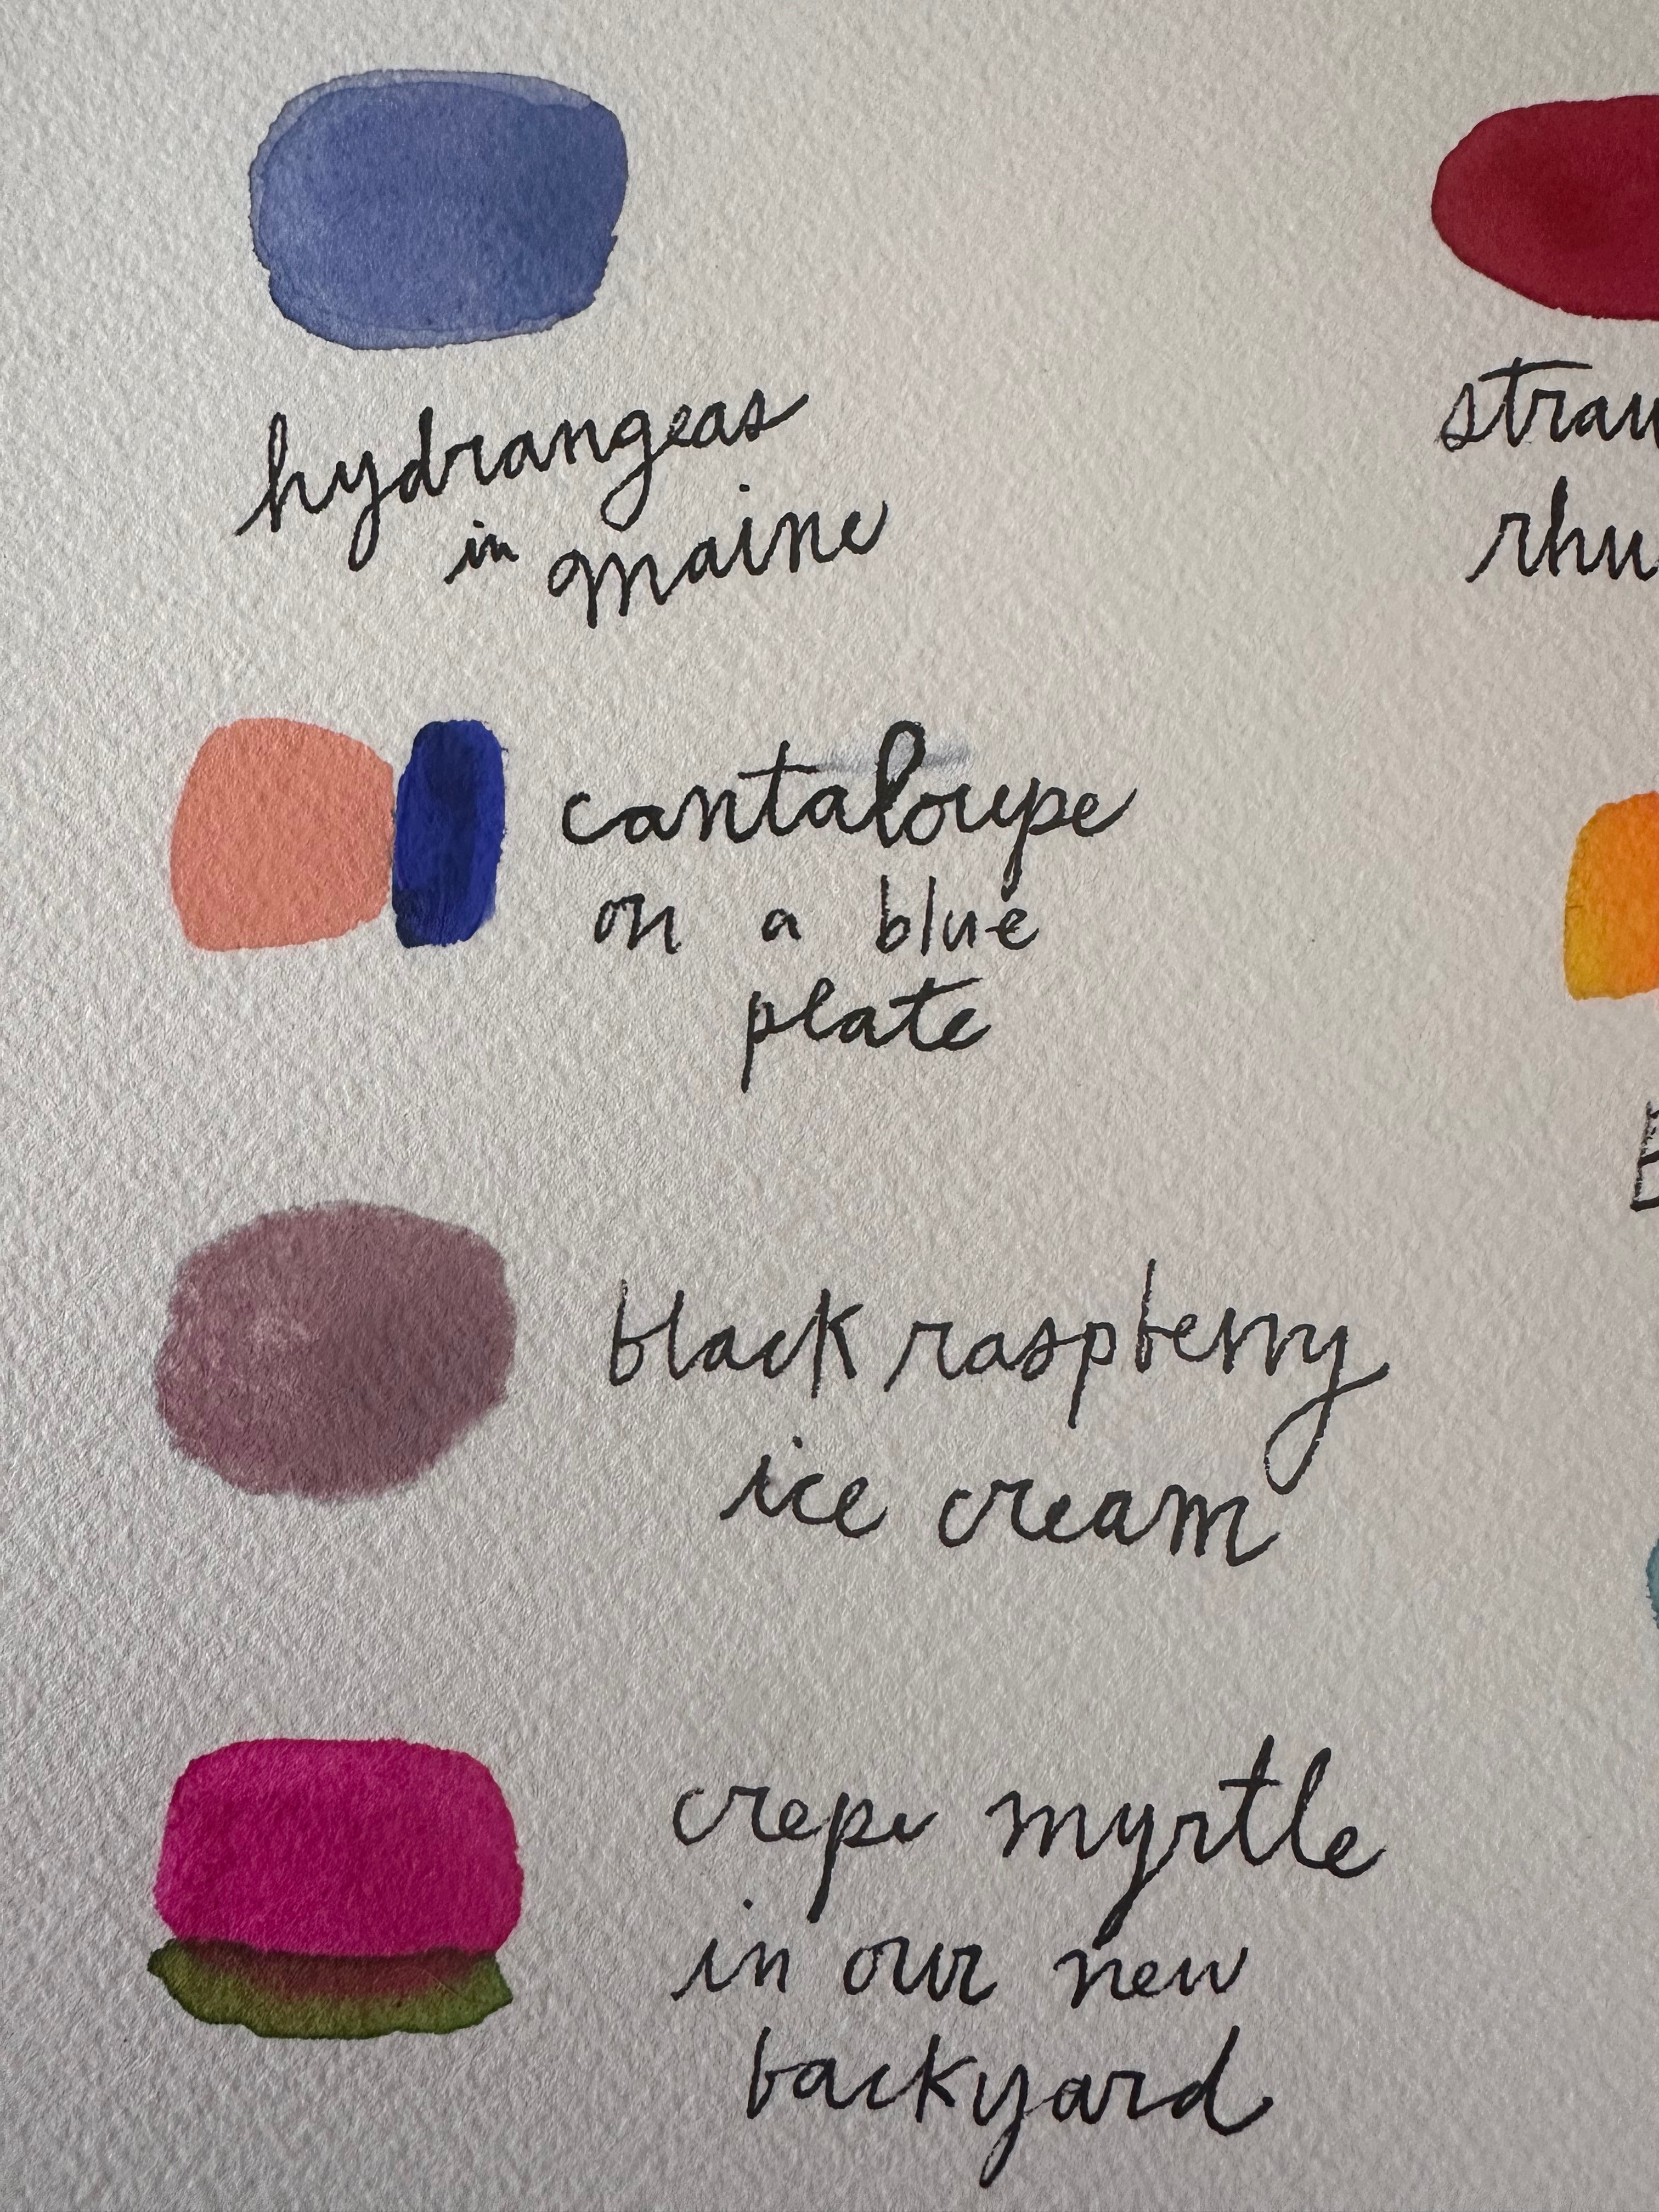 hydrangeas
in maine
cantaloupe
on a blue
plate
black raspberry
ice cream
crepe myrtle
in our new
backyard